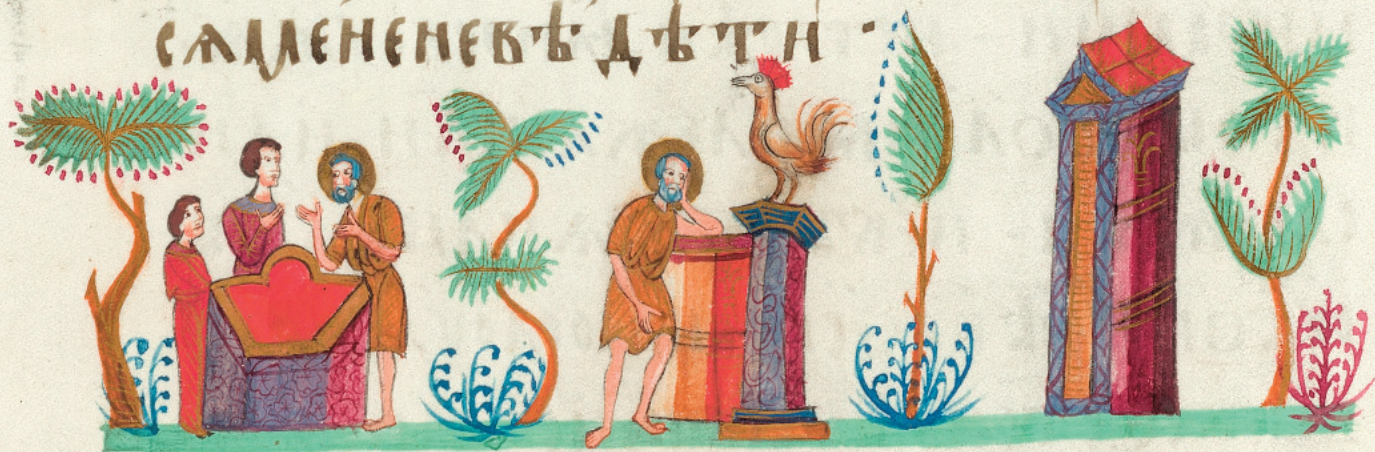 сѧмененевѣдѣти ·